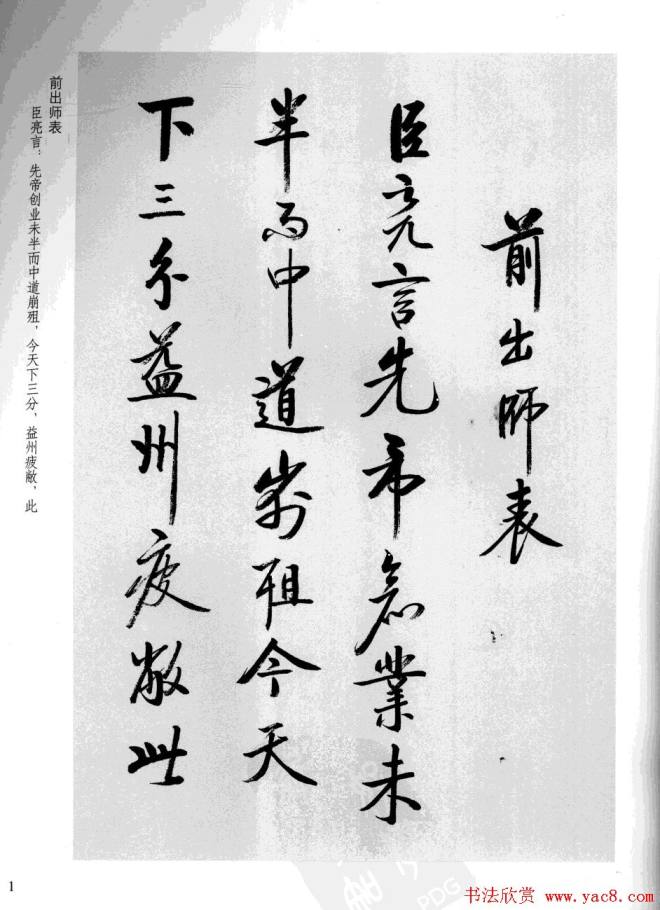 前出师表
臣亮言先帝创業未
半而中道崩殂今天
下三分益州疲敝此
前出师表
臣亮言：先帝创业未半而中道崩殂，今天下三分，益州疲敝，此
1
书法欣赏 www.yac8.com
PDG